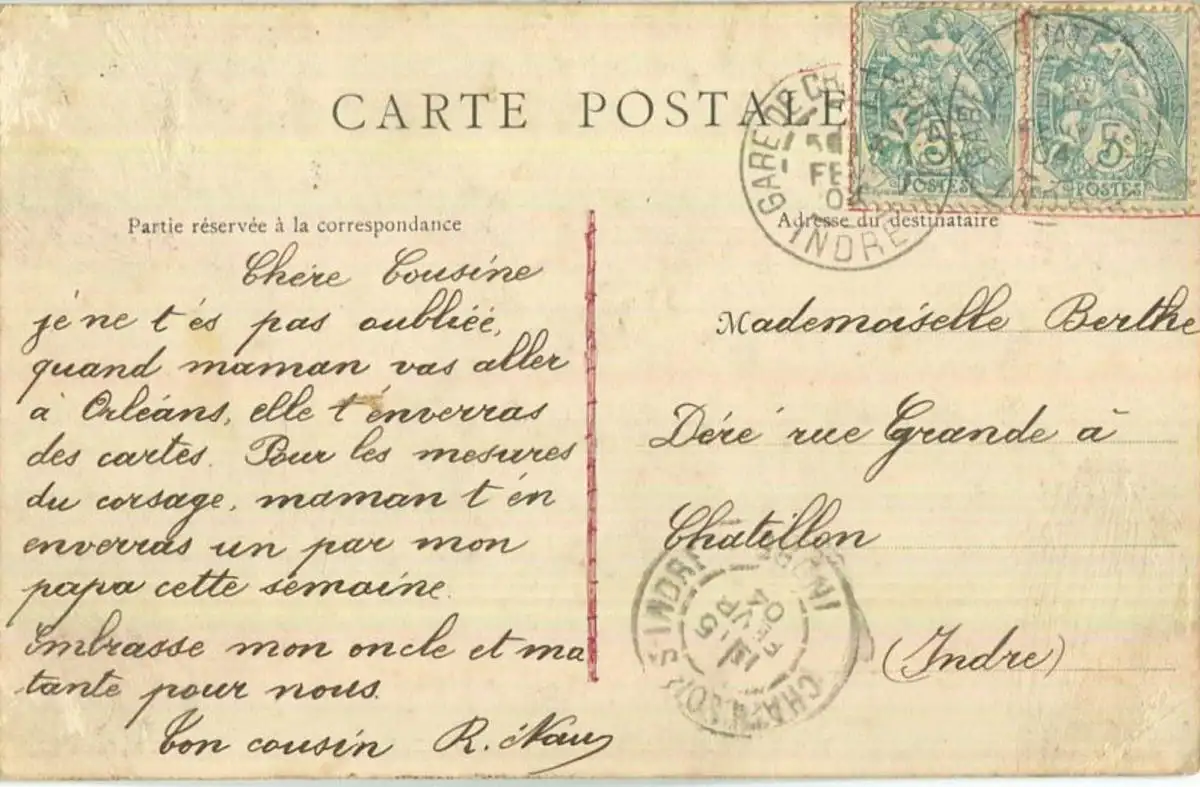 CARTE POSTALE
GARE DE CH
FEV
04
INDRE
5c
POSTES
5c
POSTES
Partie réservée à la correspondance
Chère Cousine
jé ne t'és pas oubliéé,
quand maman vas aller
à Orléans, elle t'énverras
des cartes. Pour les mesures
du corsage, maman t'én
enverras un par mon
papa cette semaine.
Embrasse mon oncle et ma
tante pour nous.
Ton cousin R. Nau
Adresse du destinataire
Mademoiselle Berthe
Déré rue Grande à
Chatillon
(Indre)
S INDRE
FEVR
04
INDRE